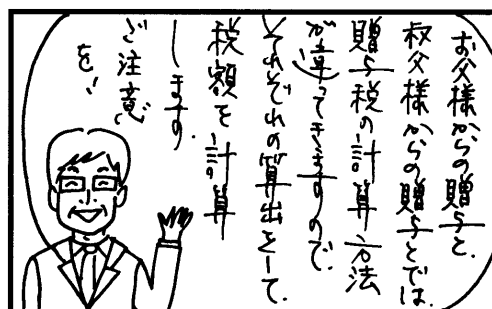 お父様からの贈与と、
叔父様からの贈与とでは、
贈与税の計算方法
が違ってきますので、
それぞれの算出をして、
税額を計算
します。
ご注意
を！